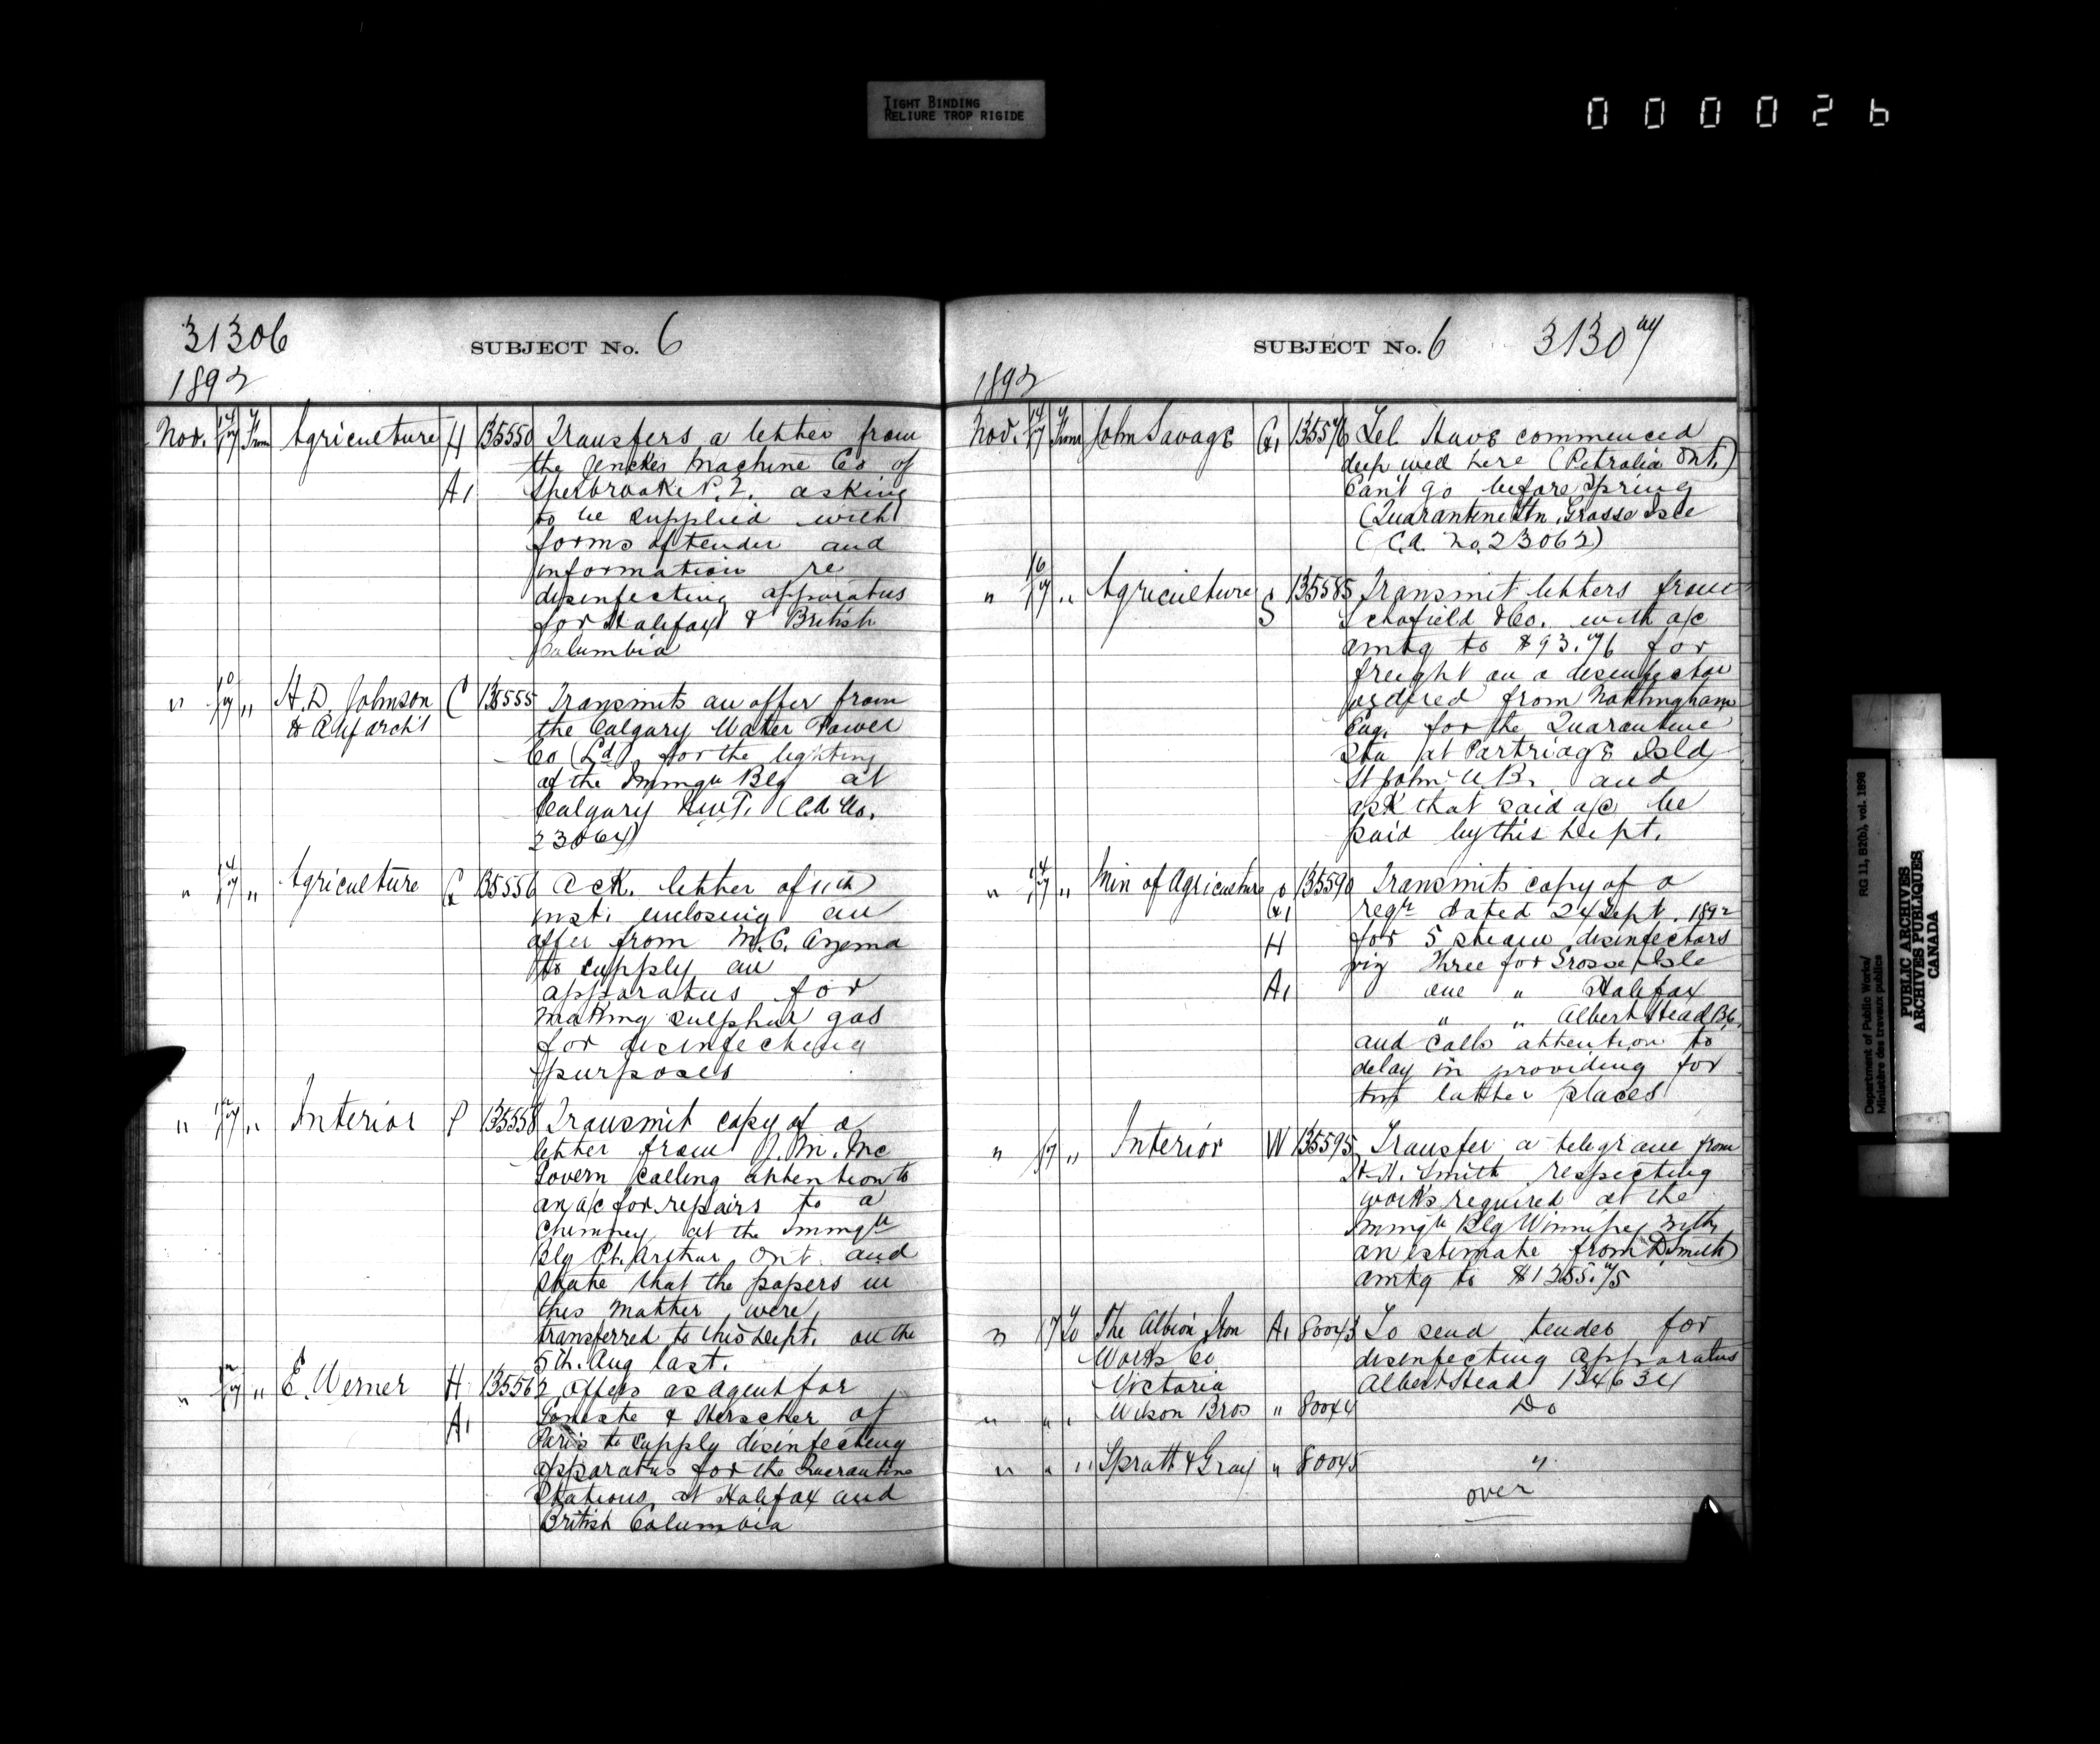 TIGHT BINDING
RELIURE TROP RIGIDE
000026
31306
SUBJECT No. 6
1892
Nov. 14/17 From Agriculture H 135550 Transfers a letter from
the Jenckes Machine Co of
A1 Sherbrooke P.Q. asking
to be supplied with
forms of tender and
information re
disinfecting apparatus
for Halifax & British
Columbia
" 10/17 " H. D. Johnson C 135555 Transmits an offer from
the Calgary Water Power
Co (Ld) for the lighting
of the Immgn Blg at
Calgary NWT. (CA No.
23064)
" 14/17 " Agriculture G 135556 Ack. letter of 11th
inst. enclosing an
offer from M. C. Azema
to supply an
apparatus for
making sulphur gas
for disinfecting
purposes
" 12/17 " Interior P 135558 Transmit copy of a
letter from J. M. Mc
Govern calling attention to
an a/c for repairs to a
chimney at the Immgn
Blg Pt. Arthur Ont. and
state that the papers in
this matter were
transferred to this Dept. on the
5th. Aug last.
" 12/17 " E. Werner H 135562 Offers as agent for
A1 Geneste & Herscher of
Paris to supply disinfecting
apparatus for the Quarantine
Stations at Halifax and
British Columbia
SUBJECT No. 6 31307
1892
Nov. 14/17 From John Savage G1 135576 Tel Have commenced
deep well here (Petrolia Ont.)
Can't go before Spring
(Quarantine Stn. Grosse Isle
(C.A. No. 23062)
" 16/17 " Agriculture S 135585 Transmit letters from
Schofield & Co. with a/c
amtg to $93.76 for
freight on a disinfector
ordered from Nottingham
Eng. for the Quarantine
Stn at Partridge Isld
St John N.B. and
ask that said a/c be
paid by this Dept.
" 14/17 " Min of Agriculture 135590 Transmits copy of a
G1 reqn dated 24 Sept. 1892
H for 5 steam disinfectors
viz Three for Grosse Isle
A1 one " Halifax
" " Albert Head B.C.
and calls attention to
delay in providing for
two latter places
" /17 " Interior W 135595 Transfer a telegram from
H. H. Smith respecting
works required at the
Immgn Blg Winnipeg with
an estimate from D. Smith
amtg to $1255.75
" 17 To The Albion Iron A1 80043 To send tender for
Works Co disinfecting apparatus
Victoria Albert Head 134634
" " " Wilson Bros " 80044 Do
" " " Spratt & Gray " 80045 "
over
Department of Public Works/ RG 11, B2(b), vol. 1898
Ministère des travaux publics
PUBLIC ARCHIVES
ARCHIVES PUBLIQUES
CANADA